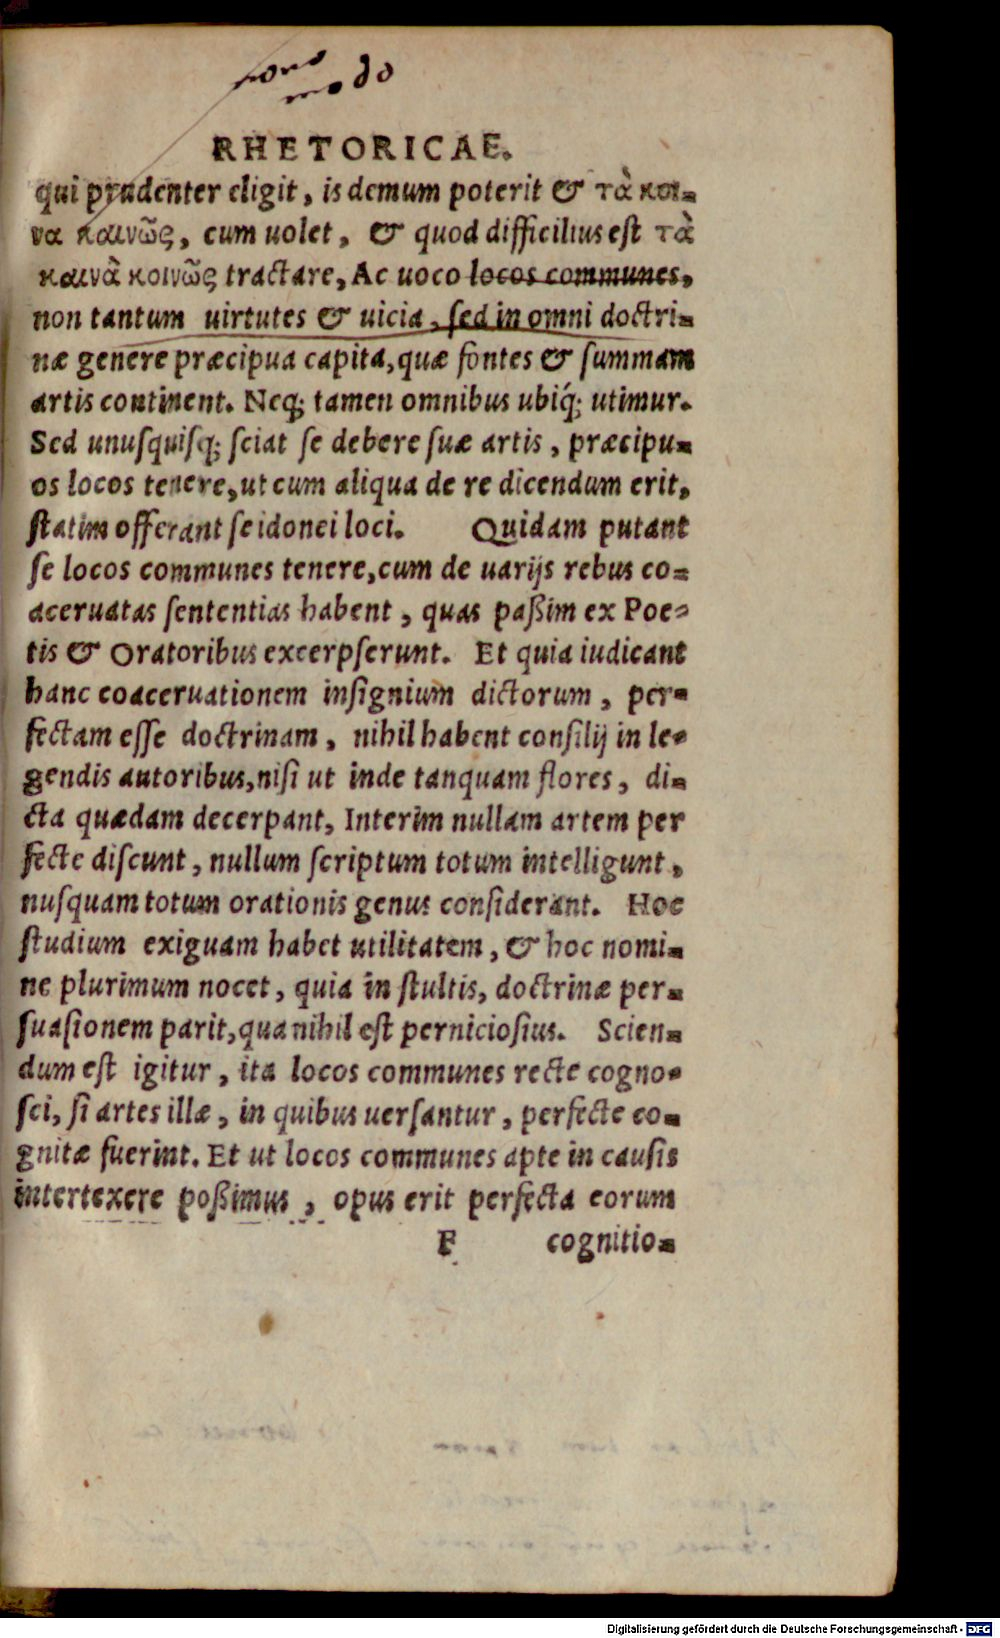 nouo
modo
RHETORICAE.
qui prudenter eligit, is demum poterit & τὰ κοι-
να καινῶς, cum uolet, & quod difficilius est τὰ
καινὰ κοινῶς tractare, Ac uoco locos communes,
non tantum uirtutes & uicia, sed in omni doctri-
næ genere præcipua capita, quæ fontes & summam
artis continent. Neq; tamen omnibus ubiq́; utimur.
Sed unusquisq; sciat se debere suæ artis, præcipu-
os locos tenere, ut cum aliqua de re dicendum erit,
statim offerant se idonei loci. Quidam putant
se locos communes tenere, cum de uarijs rebus co-
aceruatas sententias habent, quas paßim ex Poe-
tis & Oratoribus excerpserunt. Et quia iudicant
hanc coaceruationem insignium dictorum, per-
fectam esse doctrinam, nihil habent consilij in le-
gendis autoribus, nisi ut inde tanquam flores, di-
cta quædam decerpant, Interim nullam artem per
fecte discunt, nullum scriptum totum intelligunt,
nusquam totum orationis genus considerant. Hoc
studium exiguam habet utilitatem, & hoc nomi-
ne plurimum nocet, quia in stultis, doctrinæ per-
suasionem parit, qua nihil est perniciosius. Scien-
dum est igitur, ita locos communes recte cogno-
sci, si artes illæ, in quibus uersantur, perfecte co-
gnitæ fuerint. Et ut locos communes apte in causis
intertexere poßimus, opus erit perfecta eorum
F cognitio-
Digitalisierung gefördert durch die Deutsche Forschungsgemeinschaft - DFG